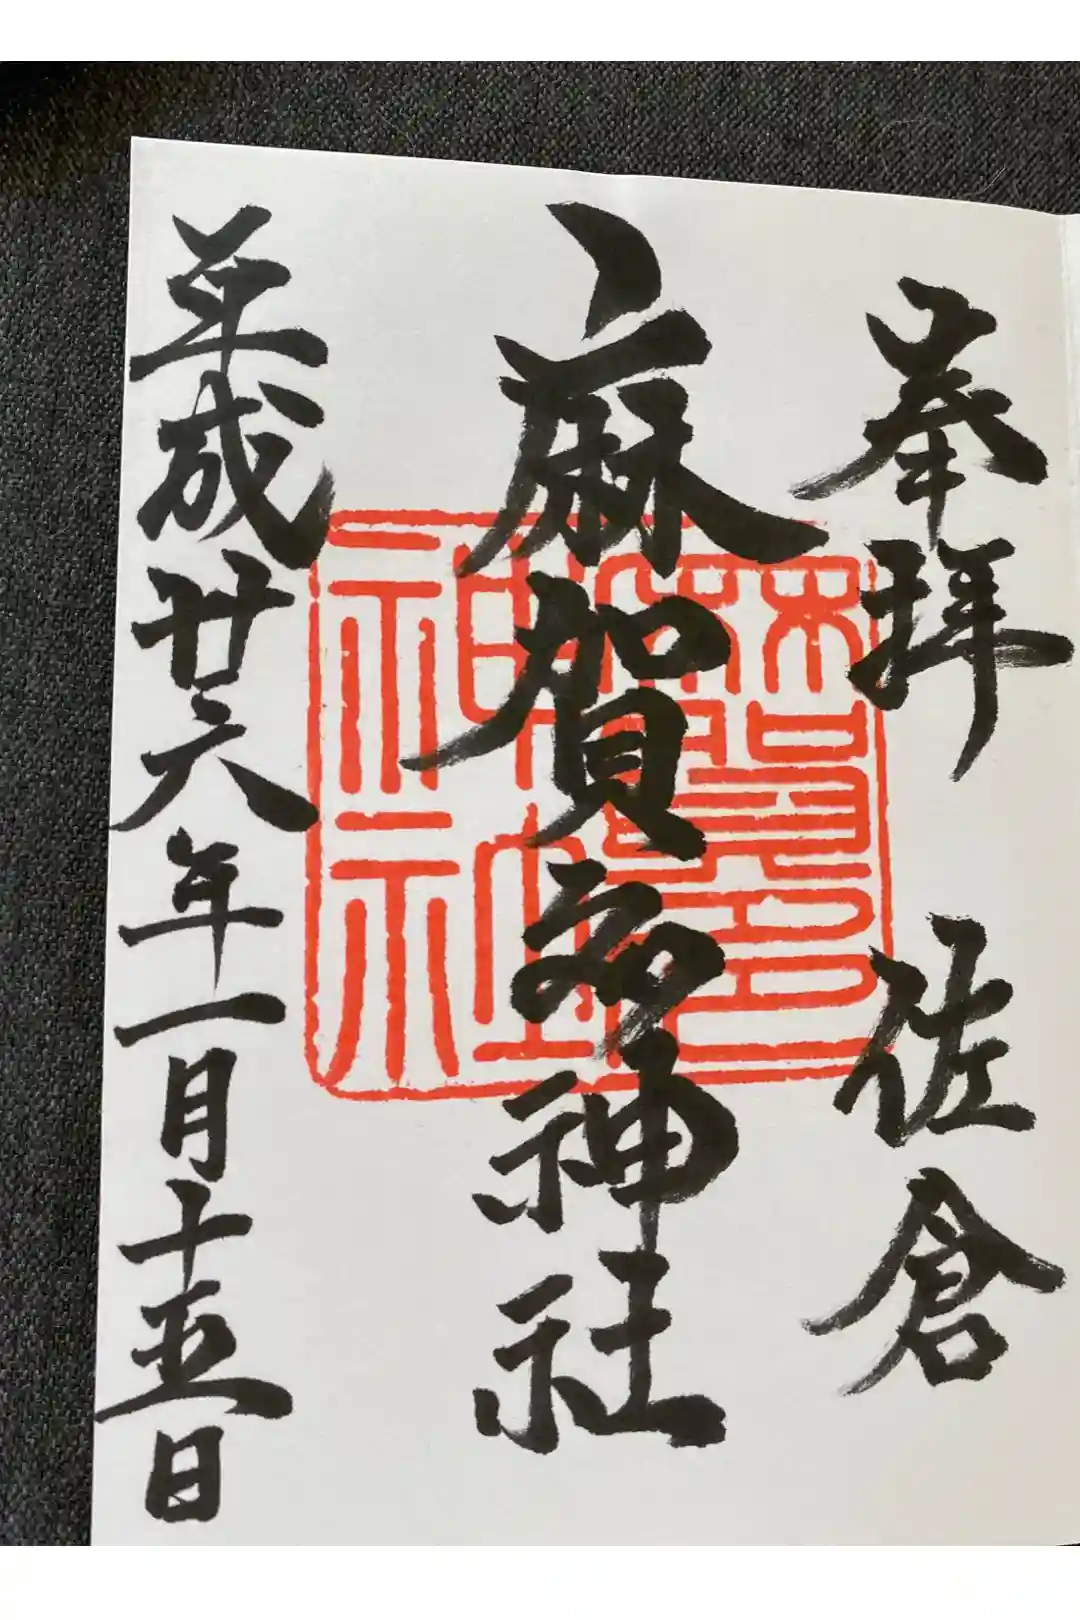 奉拝 佐倉
麻賀多神社
平成廿六年一月十五日
麻賀多
神社